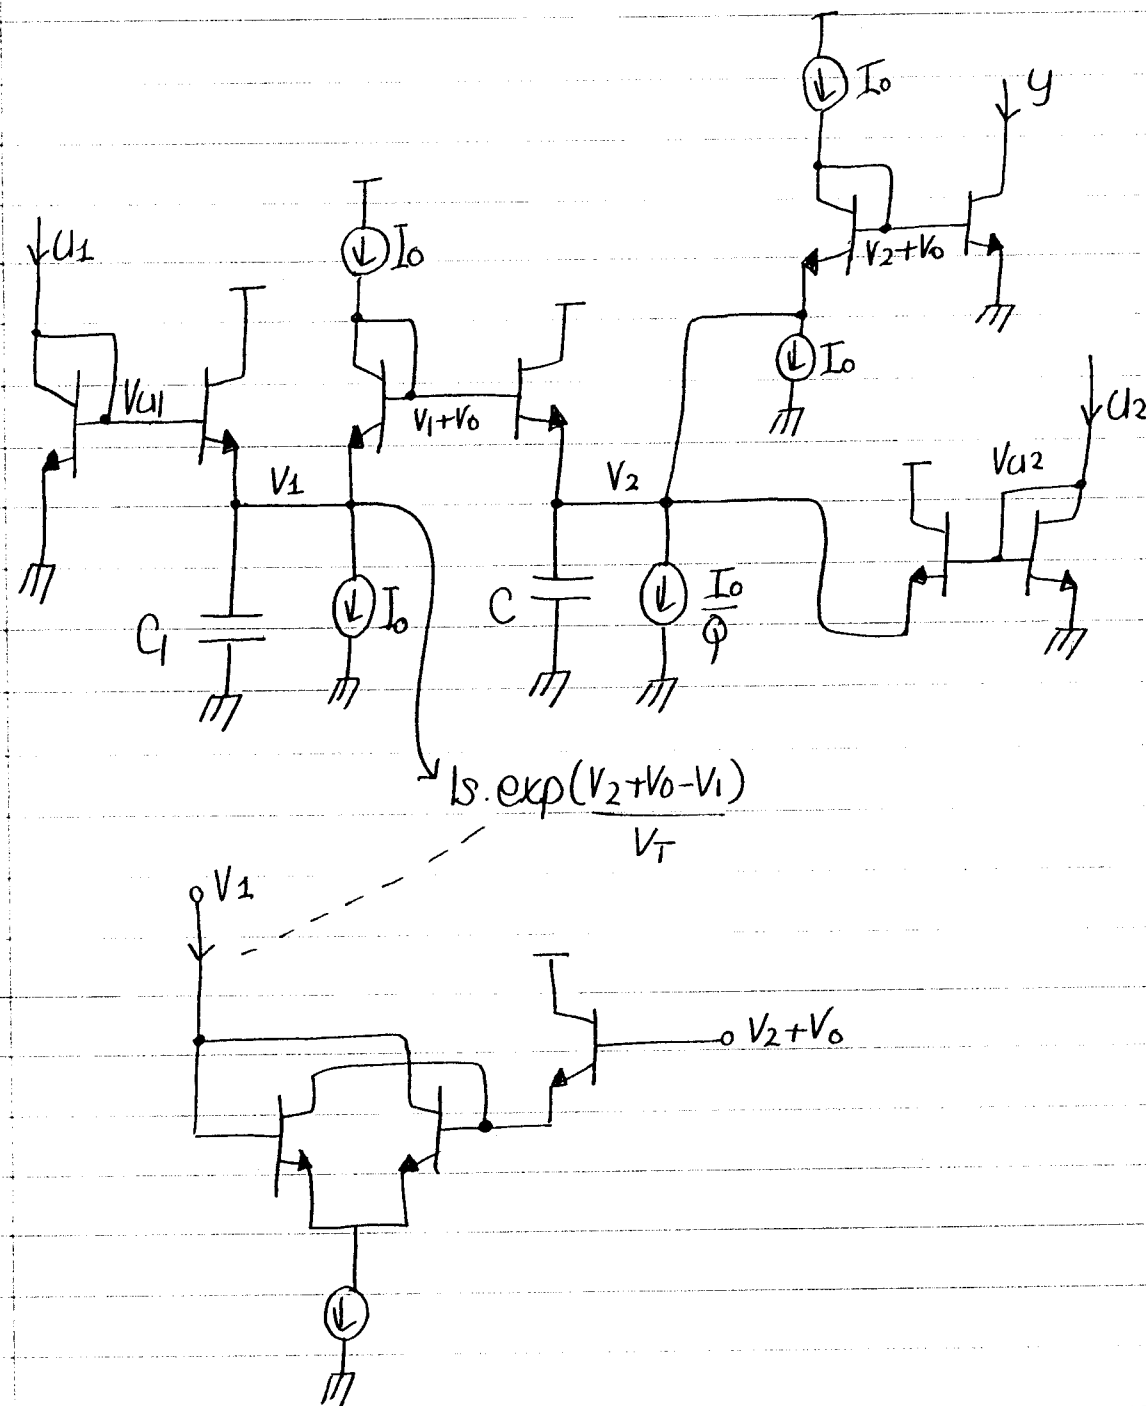 I₀
y
U1
I₀
V₂+V₀
I₀
U2
Vu1
V₁+V₀
Vu2
V1
V₂
C₁
I₀
C
I₀
Q
Is.exp(V₂+V₀-V₁)
V_T
V1
V₂+V₀